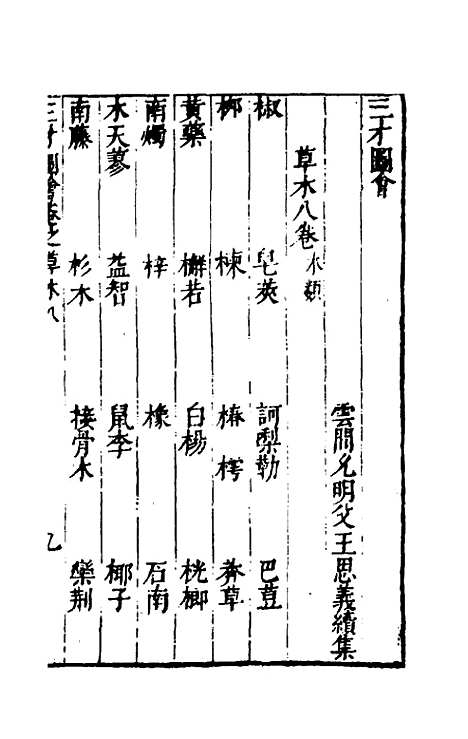 三才圖會
雲間允明父王思義續集
草木八卷 木類
椒 皂莢 訶梨勒 巴荳
柳 楝 椿樗 莽草
黃藥 槲若 白楊 桄榔
南燭 梓 橡 石南
木天蓼 益智 鼠李 椰子
南藤 杉木 接骨木 欒荆
三才圖會 草木八